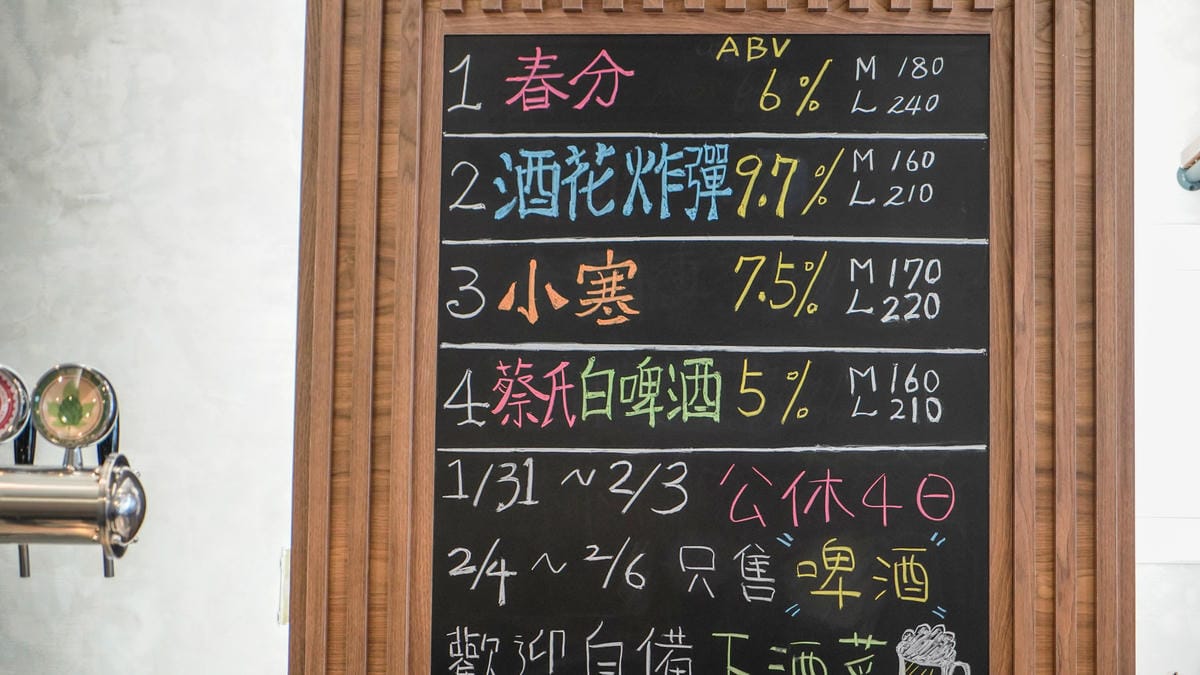 ABV
1 春分 6% M 180
L 240
2 酒花炸彈 9.7% M 160
L 210
3 小寒 7.5% M 170
L 220
4 蔡氏白啤酒 5% M 160
L 210
1/31 ~ 2/3 公休4日
2/4 ~ 2/6 只售啤酒
歡迎自備下酒菜